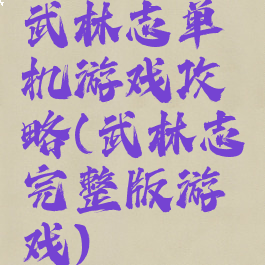 武林志单
机游戏攻
略(武林志
完整版游
戏)